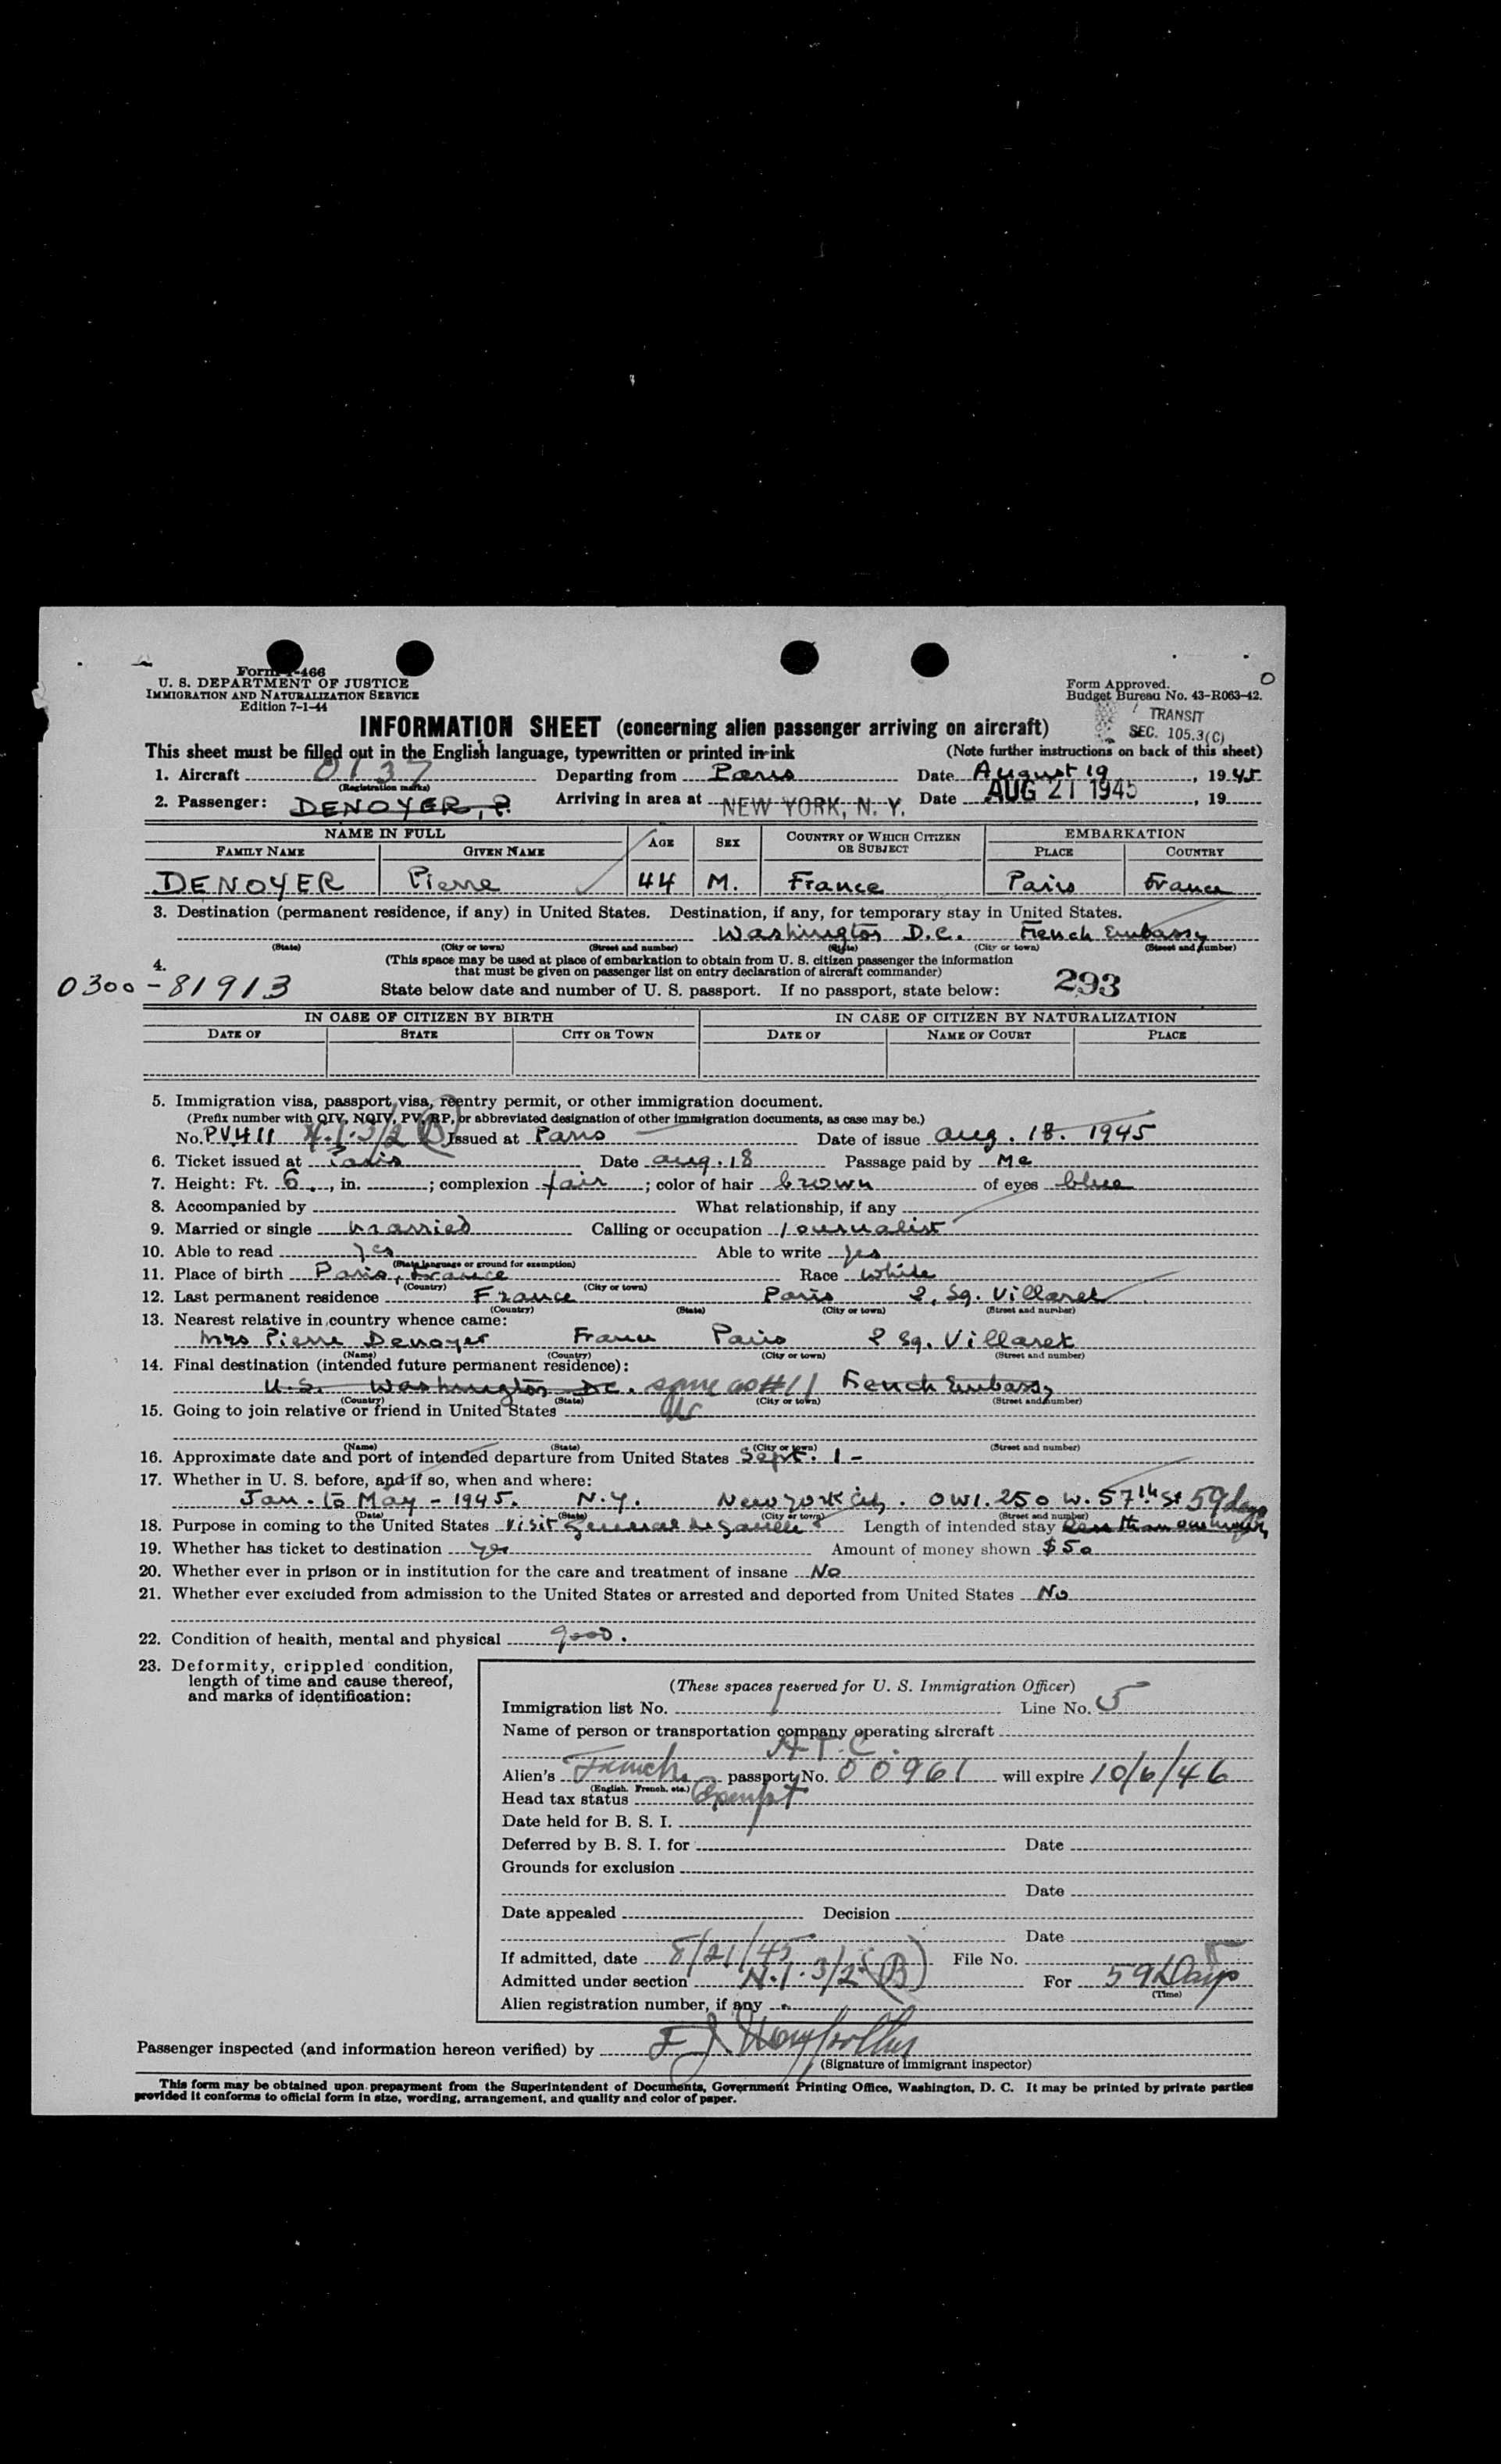 Form I-466
U. S. DEPARTMENT OF JUSTICE
IMMIGRATION AND NATURALIZATION SERVICE
Edition 7-1-44
Form Approved.
Budget Bureau No. 43-R063-42.
TRANSIT
SEC. 105.3(C)
INFORMATION SHEET (concerning alien passenger arriving on aircraft)
This sheet must be filled out in the English language, typewritten or printed in ink (Note further instructions on back of this sheet)
1. Aircraft 0137 Departing from Paris Date August 19, 1945
(Registration marks)
2. Passenger: DENOYER, P. Arriving in area at NEW YORK, N. Y. Date AUG 21 1945, 19
NAME IN FULL AGE SEX COUNTRY OF WHICH CITIZEN OR SUBJECT EMBARKATION
FAMILY NAME GIVEN NAME PLACE COUNTRY
DENOYER Pierre 44 M. France Paris France
3. Destination (permanent residence, if any) in United States. Destination, if any, for temporary stay in United States.
Washington D.C. French Embassy
(State) (City or town) (Street and number) (State) (City or town) (Street and number)
4. (This space may be used at place of embarkation to obtain from U. S. citizen passenger the information
that must be given on passenger list on entry declaration of aircraft commander)
0300-81913 State below date and number of U. S. passport. If no passport, state below: 293
IN CASE OF CITIZEN BY BIRTH IN CASE OF CITIZEN BY NATURALIZATION
DATE OF STATE CITY OR TOWN DATE OF NAME OF COURT PLACE
5. Immigration visa, passport visa, reentry permit, or other immigration document.
(Prefix number with QIV, NQIV, PV, RP, or abbreviated designation of other immigration documents, as case may be.)
No. PV411 N.I. 3/2 (B) Issued at Paris Date of issue Aug. 18. 1945
6. Ticket issued at Paris Date Aug. 18 Passage paid by Me
7. Height: Ft. 6, in. ; complexion fair ; color of hair brown of eyes blue
8. Accompanied by What relationship, if any
9. Married or single married Calling or occupation journalist
10. Able to read yes Able to write yes
(State language or ground for exemption)
11. Place of birth Paris, France Race White
(Country) (City or town)
12. Last permanent residence France Paris 2, Sq. Villaret
(Country) (State) (City or town) (Street and number)
13. Nearest relative in country whence came:
Mrs Pierre Denoyer France Paris 2 Sq. Villaret
(Name) (Country) (City or town) (Street and number)
14. Final destination (intended future permanent residence):
U.S. Washington D.C. same as #11 French Embassy
(Country) (State) (City or town) (Street and number)
15. Going to join relative or friend in United States No
(Name) (State) (City or town) (Street and number)
16. Approximate date and port of intended departure from United States Sept. 1 -
17. Whether in U. S. before, and if so, when and where:
Jan. to May - 1945. N.Y. New York City. OWI. 250 W. 57th St 59 days
(Date) (State) (City or town) (Street and number)
18. Purpose in coming to the United States Visit General de Gaulle Length of intended stay less than one month
19. Whether has ticket to destination yes Amount of money shown $50
20. Whether ever in prison or in institution for the care and treatment of insane No
21. Whether ever excluded from admission to the United States or arrested and deported from United States No
22. Condition of health, mental and physical good.
23. Deformity, crippled condition,
length of time and cause thereof,
and marks of identification:
(These spaces reserved for U. S. Immigration Officer)
Immigration list No. Line No. 5
Name of person or transportation company operating aircraft
A.T.C.
Alien's French passport No. 00961 will expire 10/6/46
(English, French, etc.)
Head tax status Exempt
Date held for B. S. I.
Deferred by B. S. I. for Date
Grounds for exclusion
Date
Date appealed Decision
Date
If admitted, date 8/21/45 File No.
Admitted under section N.I. 3/2 (B) For 59 Days
(Time)
Alien registration number, if any
Passenger inspected (and information hereon verified) by F J
(Signature of immigrant inspector)
This form may be obtained upon prepayment from the Superintendent of Documents, Government Printing Office, Washington, D. C. It may be printed by private parties
provided it conforms to official form in size, wording, arrangement, and quality and color of paper.